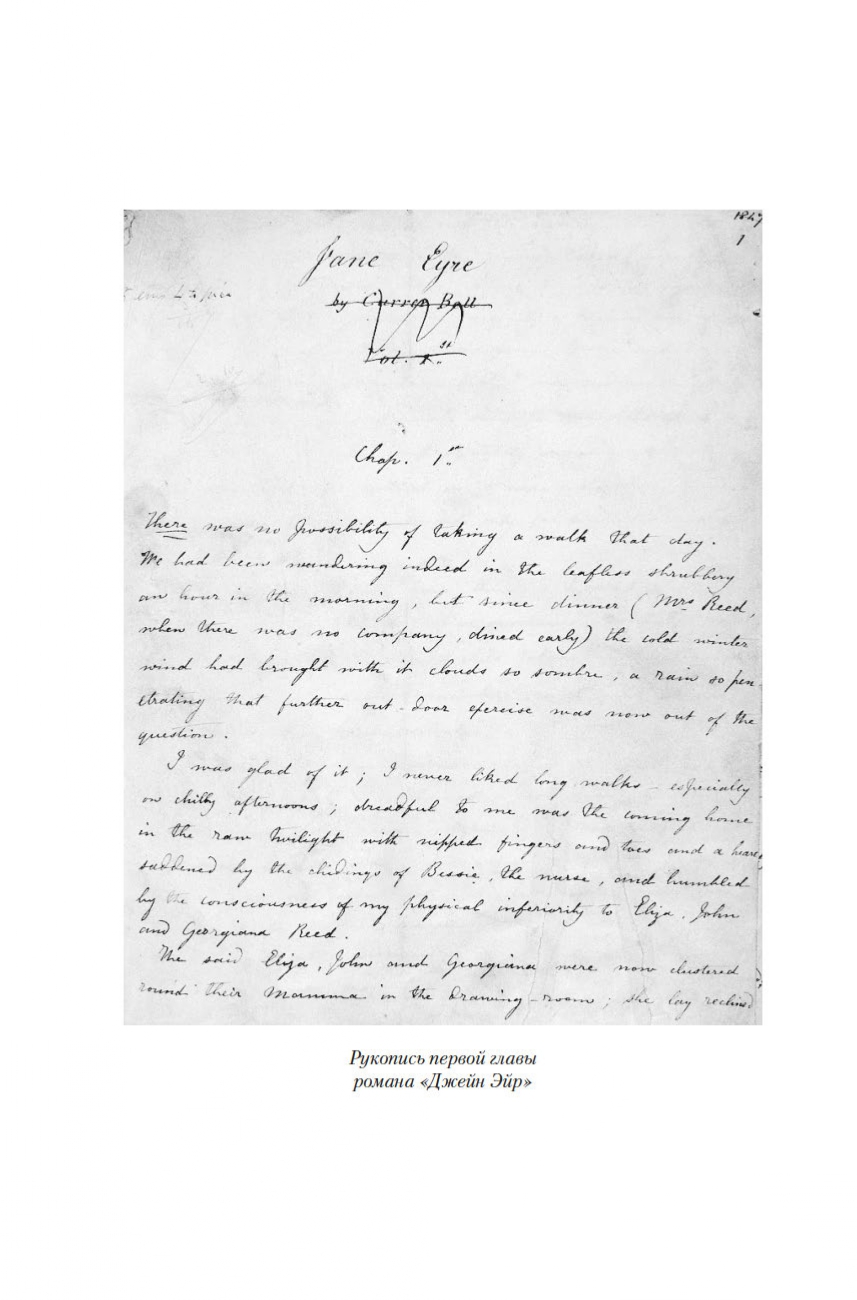 1847
1
Jane Eyre
by Currer Bell
Vol. 1.st
Chap. 1.st
There was no possibility of taking a walk that day.
We had been wandering indeed in the leafless shrubbery
an hour in the morning, but since dinner (Mrs Reed,
when there was no company, dined early) the cold winter
wind had brought with it clouds so sombre, a rain so pen-
etrating that further out-door exercise was now out of the
question.
I was glad of it; I never liked long walks - especially
on chilly afternoons; dreadful to me was the coming home
in the raw twilight with nipped fingers and toes and a heart
saddened by the chidings of Bessie, the nurse, and humbled
by the consciousness of my physical inferiority to Eliza, John
and Georgiana Reed.
The said Eliza, John and Georgiana were now clustered
round their Mamma in the drawing-room; she lay reclined
Рукопись первой главы
романа «Джейн Эйр»